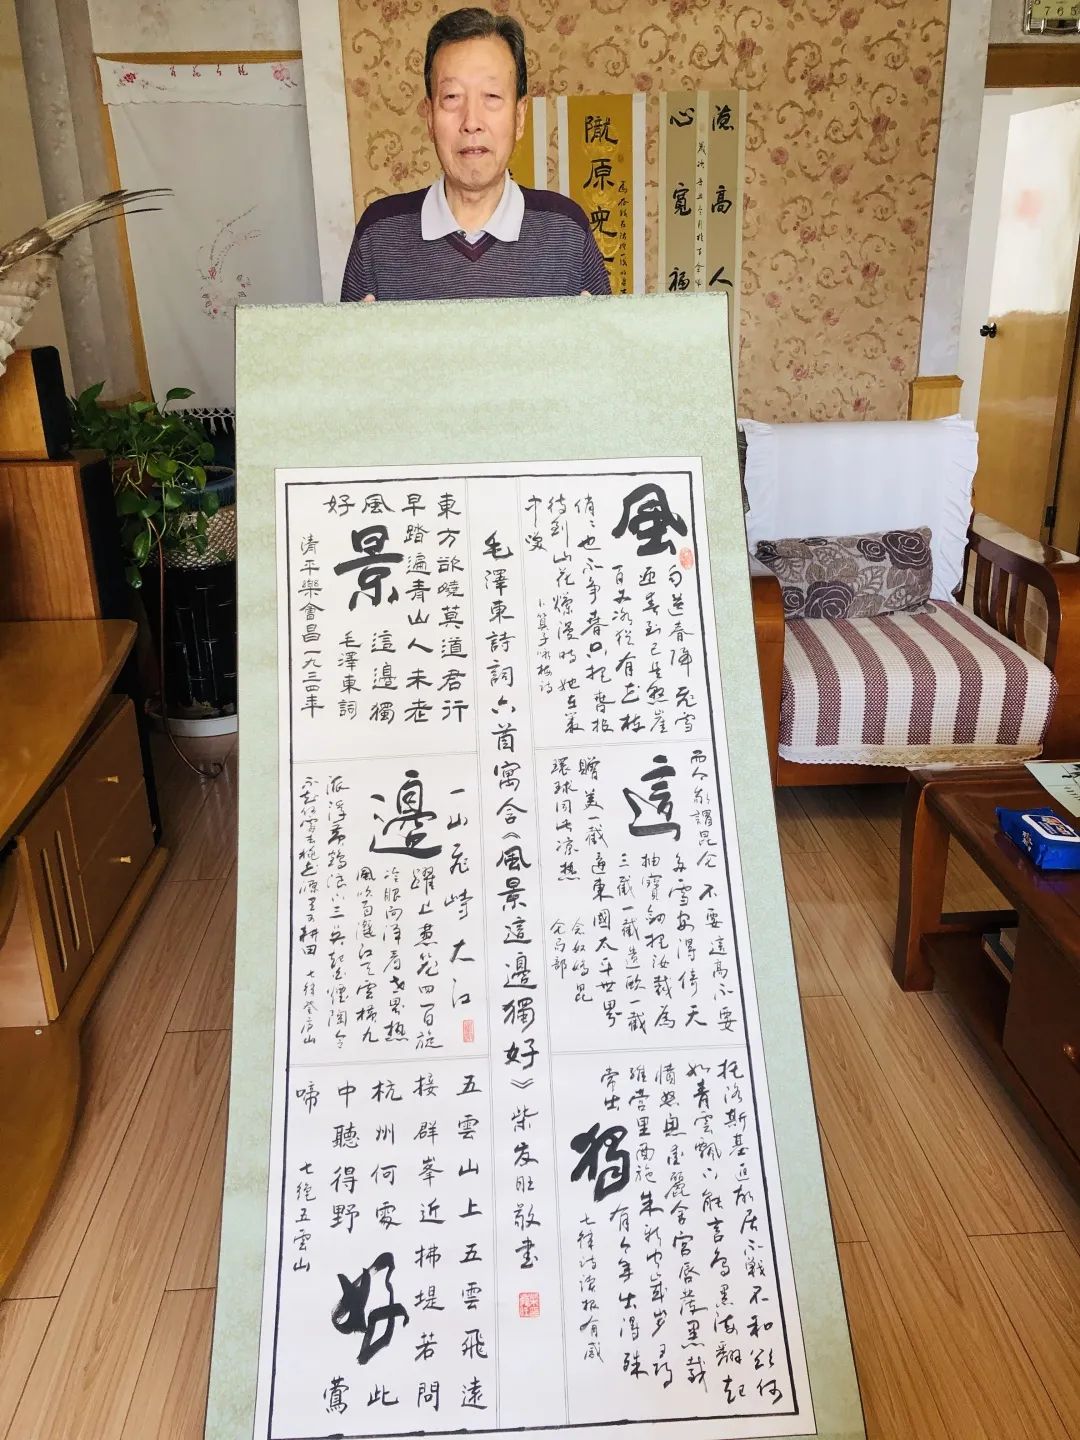 德高人
心寬福
隴原
765
風
雨送春歸飛雪
迎春到已是懸崖
百丈冰猶有花枝
俏〻也不爭春只把春報
待到山花爛漫時她在叢
中笑
卜算子詠梅詩
而今我謂昆仑 不要這高不要
這
多雪安得倚天
抽寶劍把汝裁為
三截一截遺歐一截
贈美一截還東國太平世界
環球同此涼熱
念奴嬌昆
仑局部
托洛斯基返故居不戰不和欲何
如青雲飄下能言鳥黑海翻起
憤怒魚愛麗舍宮唇發黑戴
維營里面施朱新聞歲歲尋
常出獨有今年出得殊
七律詩讀報有感
毛澤東詩詞六首寓含《風景這邊獨好》柴发旺敬書
東方欲曉莫道君行
早踏遍青山人未老
風景這邊獨
好
毛澤東詞
清平樂會昌一九三四年
一山飛峙大江
邊躍上葱蘢四百旋
冷眼向洋看世界熱
風吹雨灑江天雲橫九
派浮黄鶴浪下三吳起白煙陶令
不知何處去桃花源里可耕田 七律登庐山
五雲山上五雲飛遠
接群峯近拂堤若問
杭州何處好此
中聽得野鶯
啼 七绝五雲山